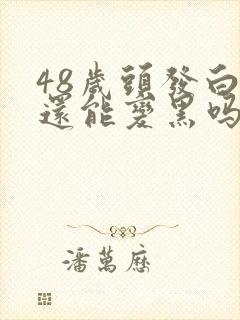 48歲頭發白
還能變黑吗
潘萬歷